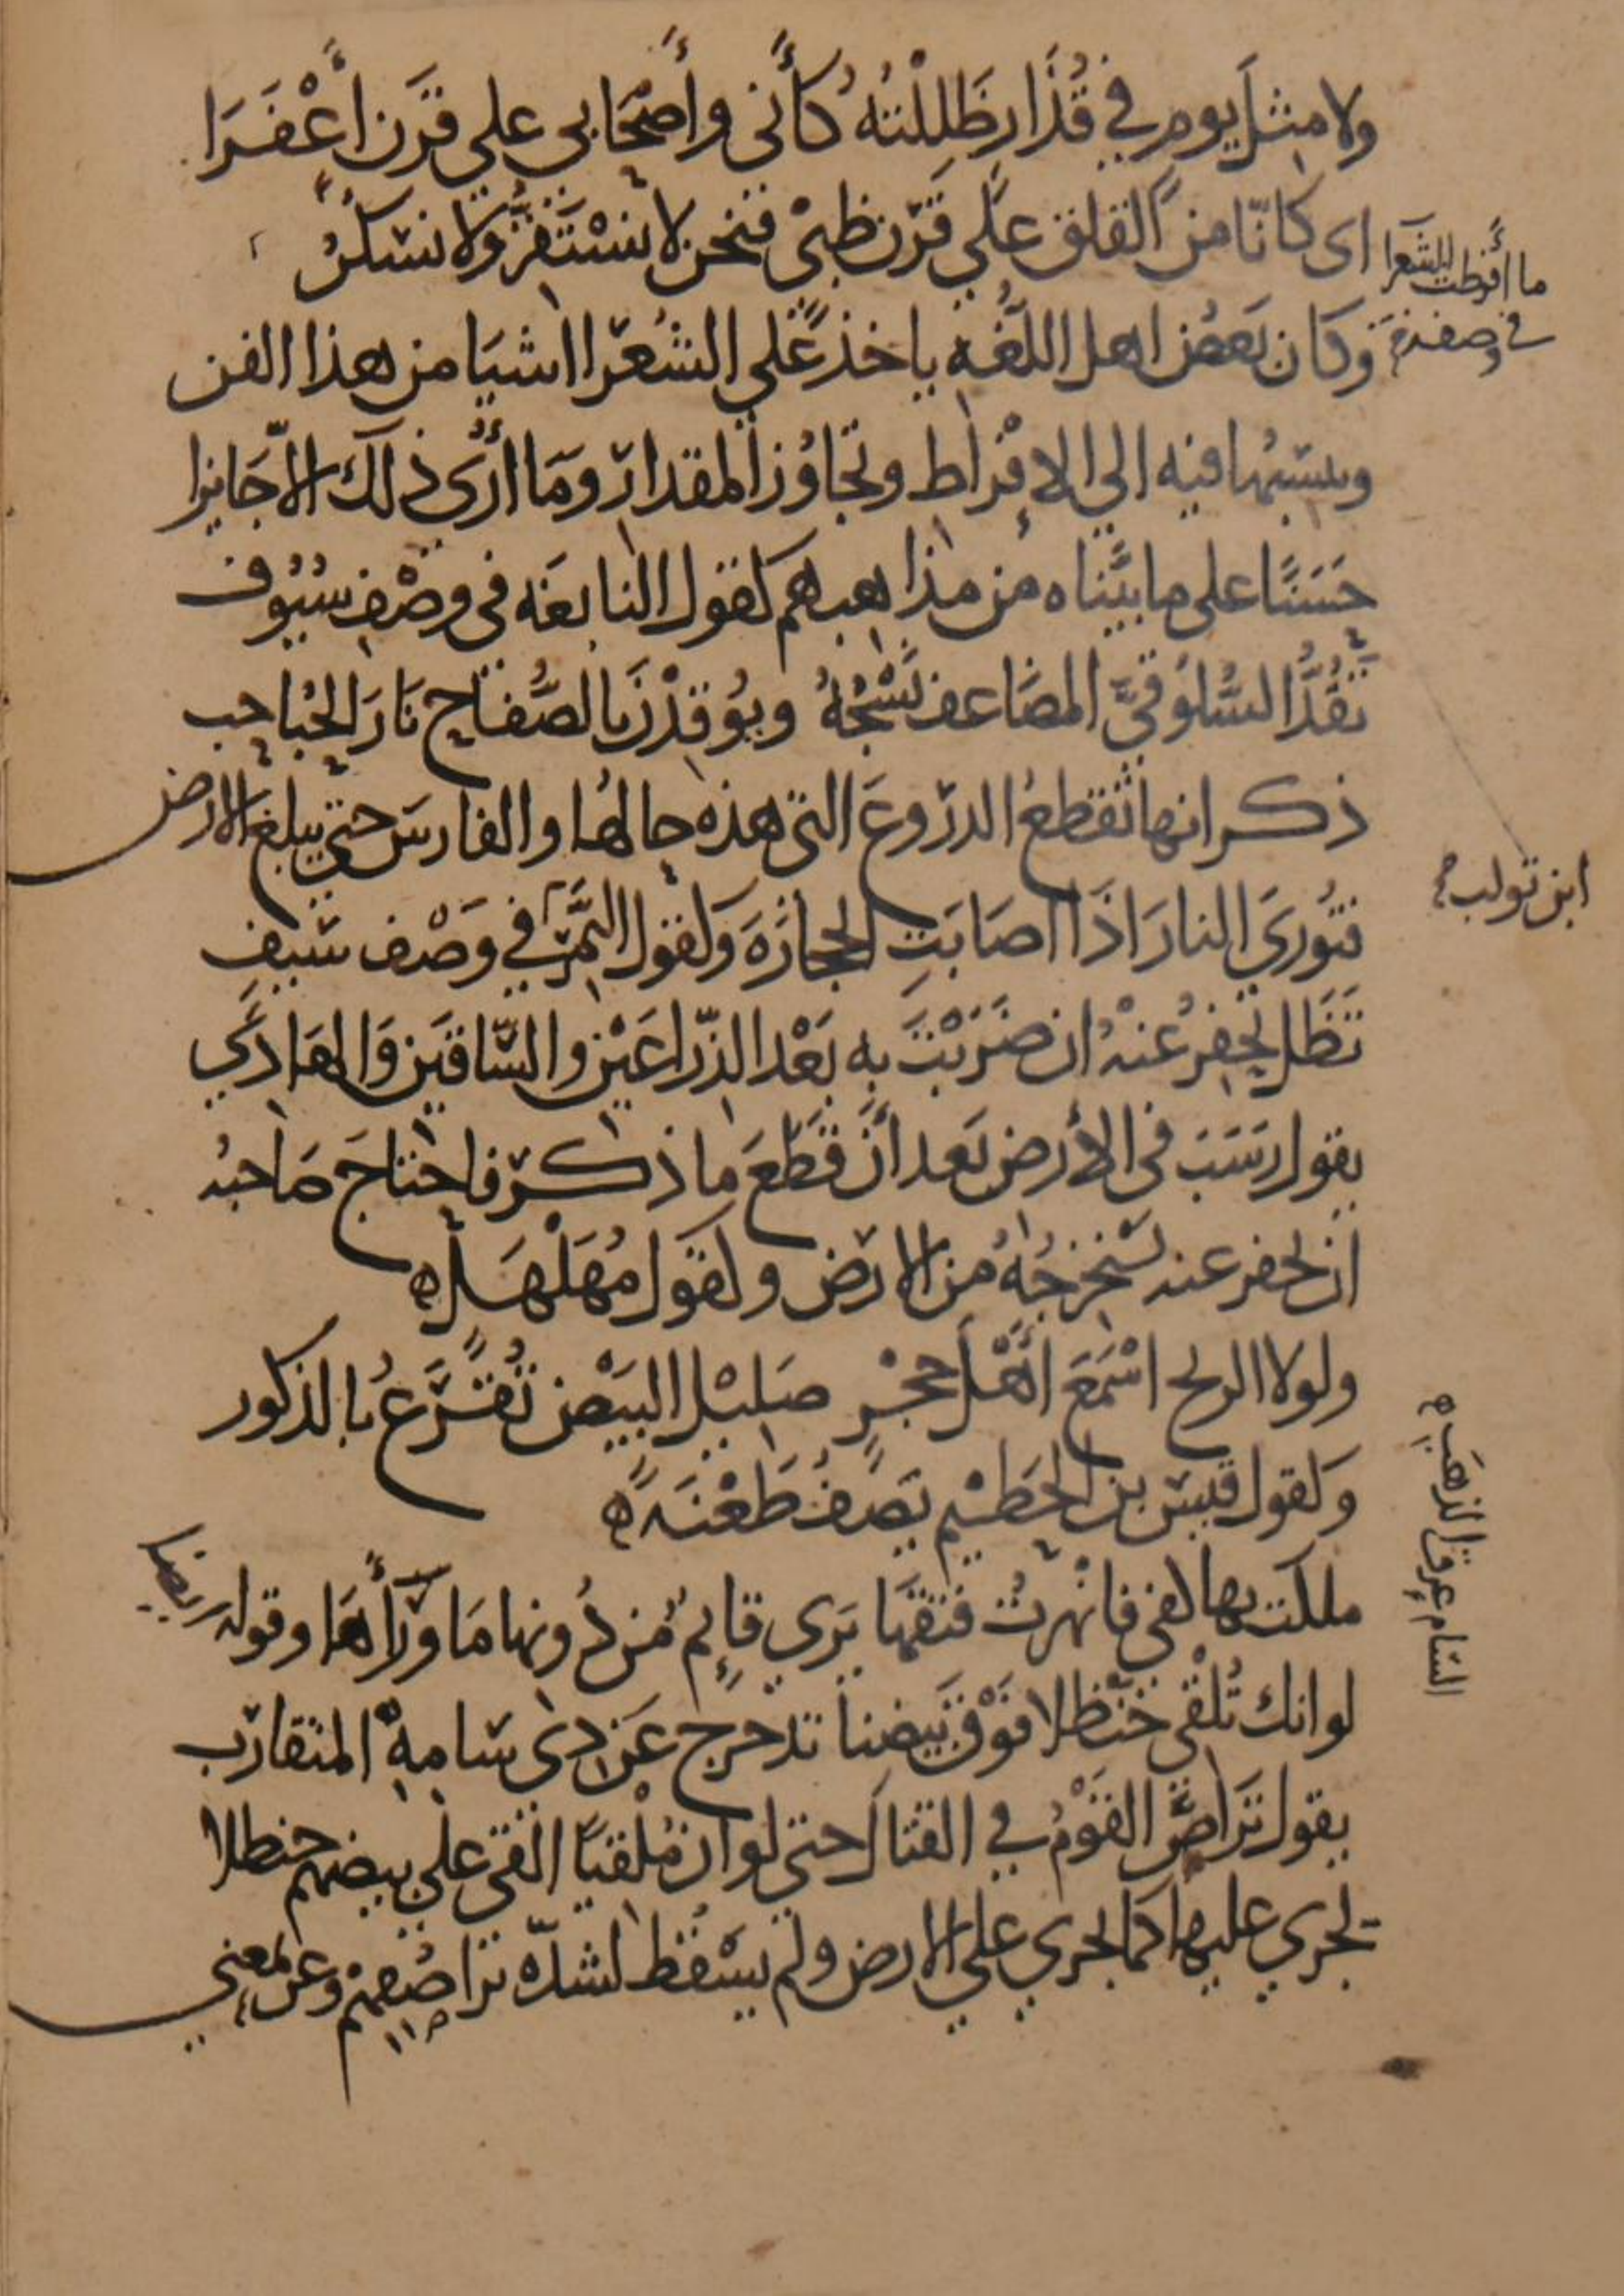 ولا مثل يوم في قُذَارٍ ظَلِلْتُهُ كأَني وأَصْحَابي على قَرْن أَعْفَرَا
اى كانّا من القلق على قَرْن ظبْى فنحن لا نسْتَقِرُّ ولا نسكنُ
ما أفرطت للشعرا
في وصفه
وكان بَعض اهل اللُّغَه ياخذ على الشُعَرا اشيا من هذا الفن
وينسبها فيه الى الافْراط وتجاوُز المقدار وَمَا أرَى ذلك الا جَايزا
حَسَنًا على ما بيَّناه من مذاهبهم كقول النابغَه فى وصْفِ سُيُوف
تَقُدُّ السَّلُوقيَّ المضَاعف نَسْجُهُ ويُوقدْنَ بالصُّفاح نَارَ الحُباحب
ذكر انها تقطعُ الدروعَ التى هذه حالهُا والفارسَ حتى يبلغ الارض
فتُورىَ النارَ اذَا اصَابَتِ الحجارَةَ وَكقول النَّمِر في وَصْف سَيفٍ
ابن تولب صح
تَظَل تحْفِرُ عَنْهُ ان ضَرَبْتَ بِه بَعْد الذّراعَيْن والسَّاقَين وَالهَادِي
يقول رسَبَ فى الأرض بَعد أنْ قَطَعَ ما ذكر فاحتاجَ صَاحبُه
ان يحفر عنه ليسْتخرجُهُ من الارض وكقول مُهَلْهَل
ولولا الريح اسْمَعَ اهْلَ حَجْرٍ صَليْل البَيْض تُقْرَعُ بالذكور
وَكقول قيس بن الخَطيْم يَصفُ طَعْنَةً
ملكت بها كفى فانْهرتُ فتقهَا يَرى قايِمٌ من دُونها مَا وَرَأهَا وقوله ايضا
لو انك تُلْقى حَنْظلا فوْق بَيضنا تدحرج عَن ذى سَامِهِ المتقارب
السام عروق الذهب
يقول تَراصَّ القَوْمُ في القتال حتى لو ان مُلْقيًا القى على بيضهم حنظلا
لجرى عليها كما يجري على الارض ولم يسْقُط لشدّه تراصُّهمْ وعن لمعنى